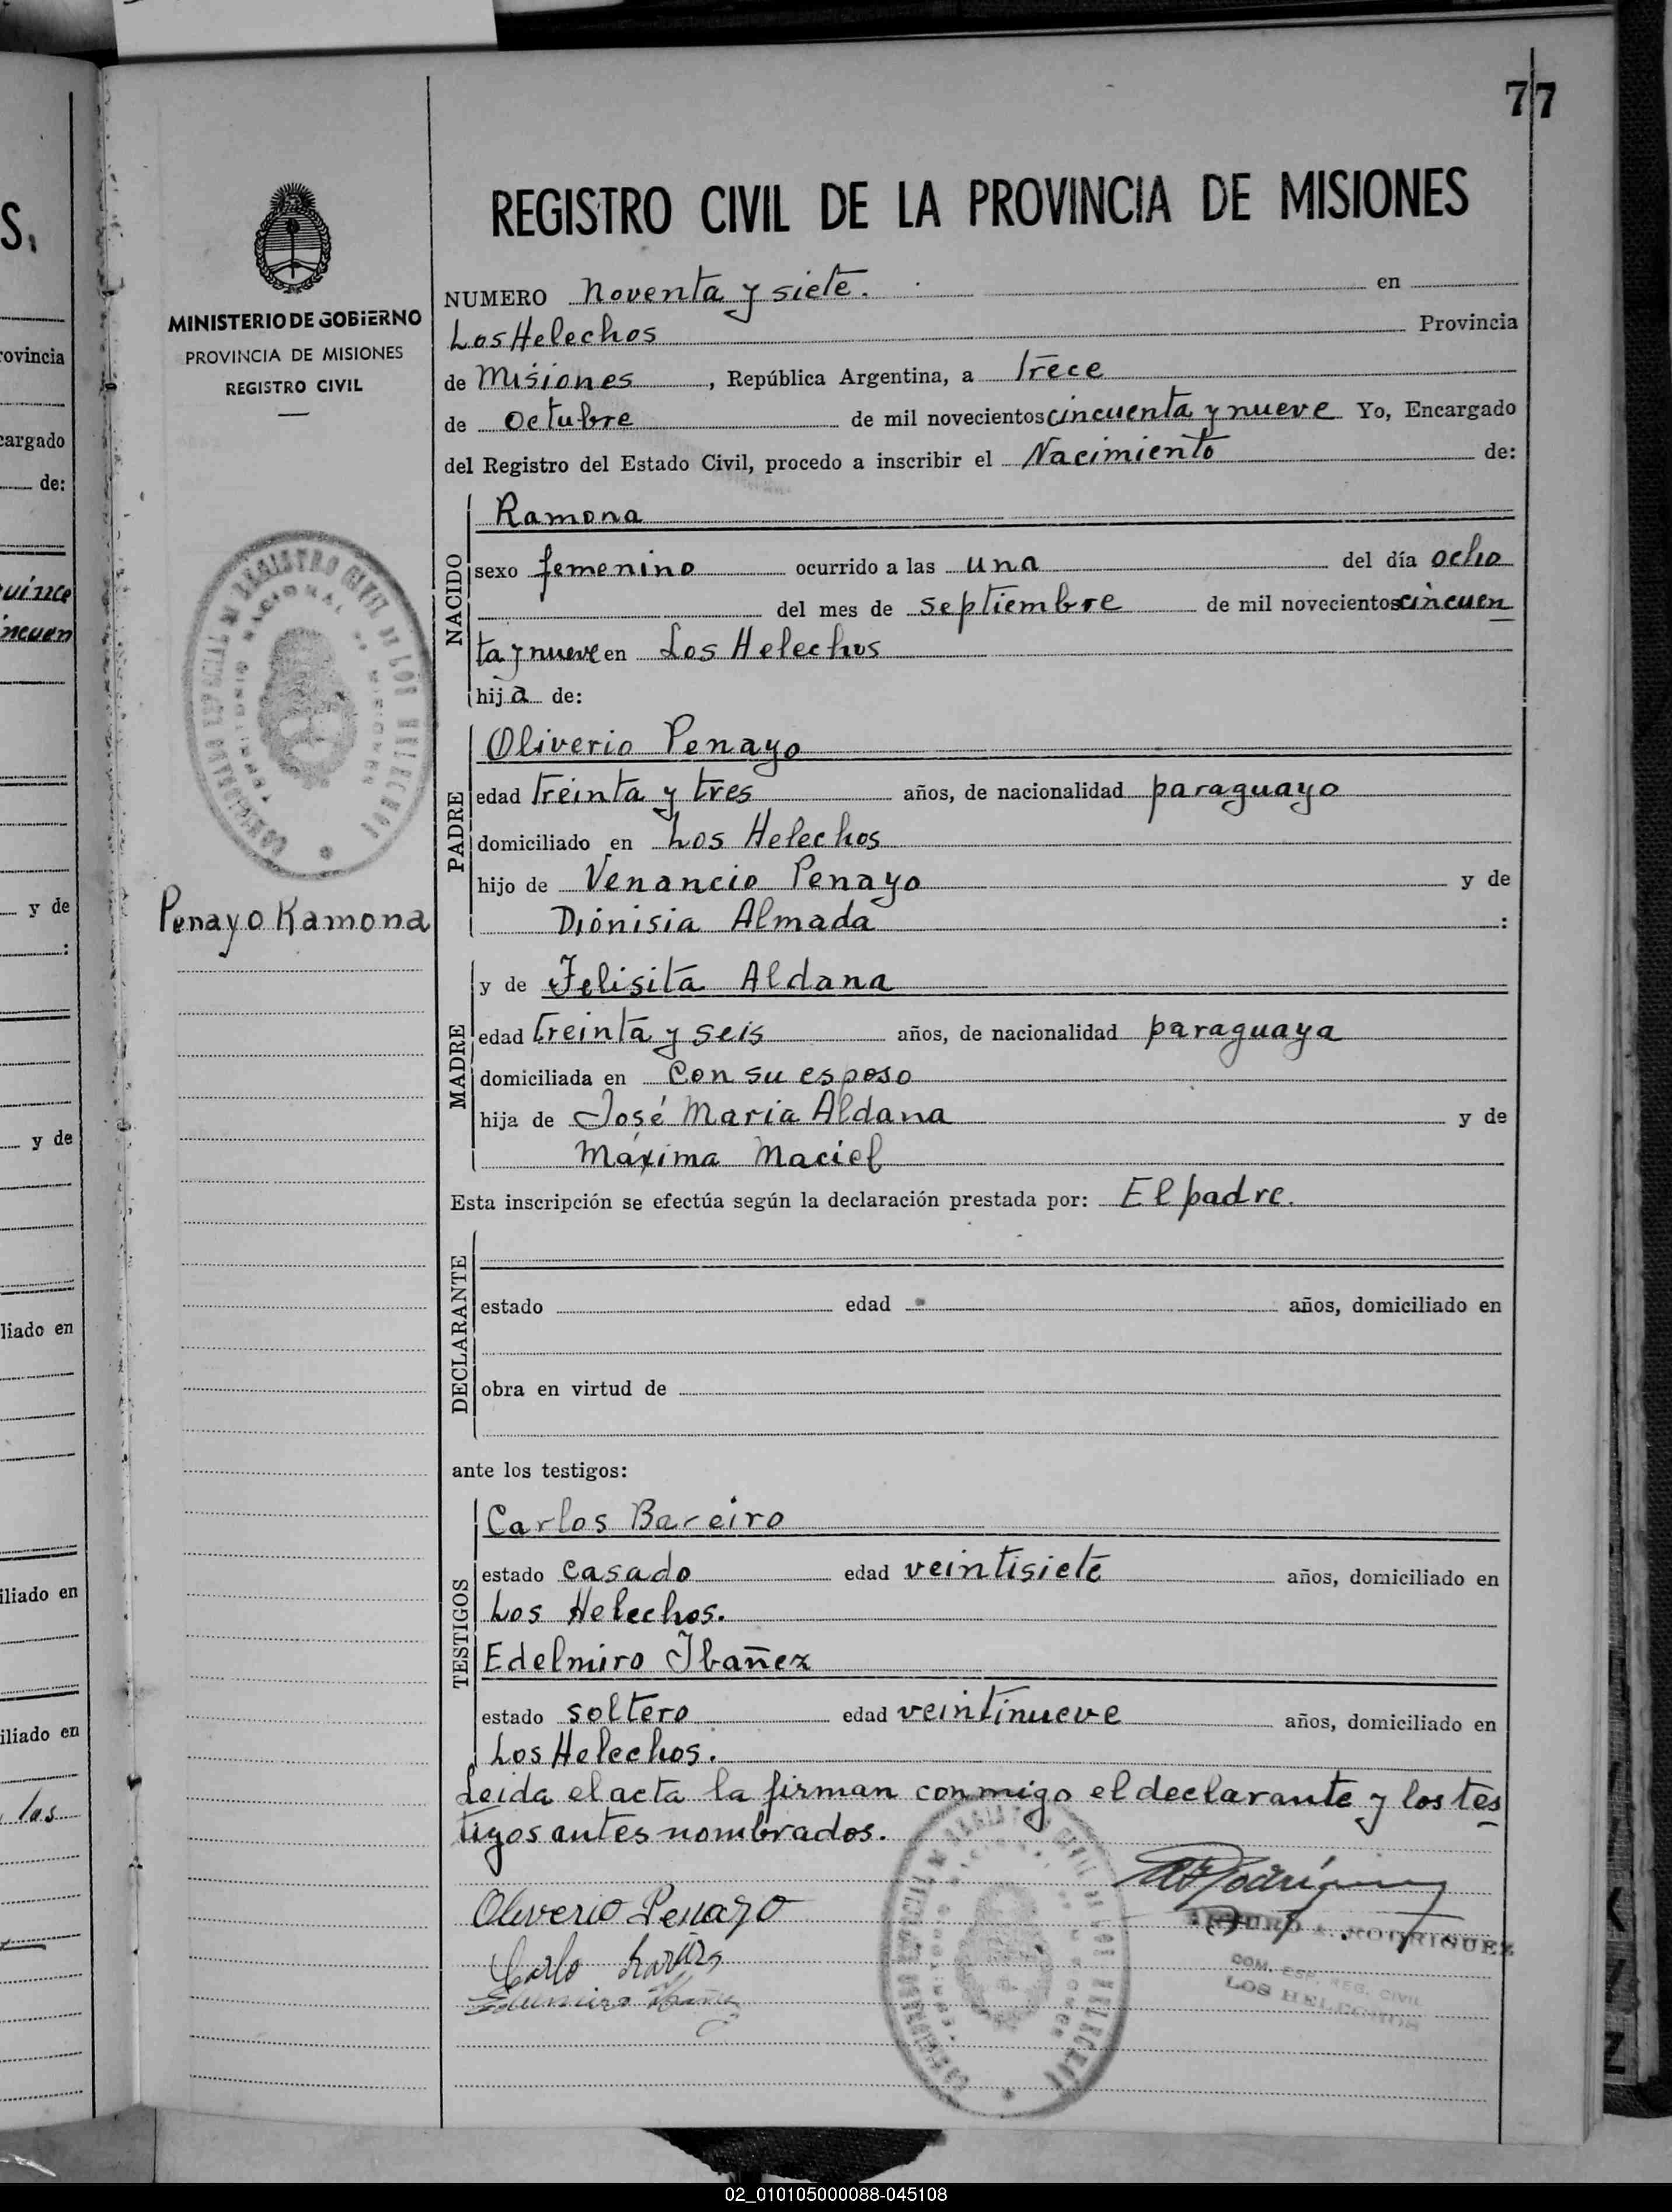 77
REGISTRO CIVIL DE LA PROVINCIA DE MISIONES
MINISTERIO DE GOBIERNO
PROVINCIA DE MISIONES
REGISTRO CIVIL
NUMERO Noventa y siete. en
Los Helechos Provincia
de Misiones, República Argentina, a Trece
de Octubre de mil novecientos cincuenta y nueve Yo, Encargado
del Registro del Estado Civil, procedo a inscribir el Nacimiento de:
NACIDO
Ramona
sexo femenino ocurrido a las una del día ocho
del mes de septiembre de mil novecientos cincuen
ta y nueve en Los Helechos
hija de:
PADRE
Oliverio Penayo
edad treinta y tres años, de nacionalidad paraguayo
domiciliado en Los Helechos
hijo de Venancio Penayo y de
Dionisia Almada :
Penayo Ramona
MADRE
y de Felisita Aldana
edad treinta y seis años, de nacionalidad paraguaya
domiciliada en Con su esposo
hija de José Maria Aldana y de
Máxima Maciel
Esta inscripción se efectúa según la declaración prestada por: El padre.
DECLARANTE
estado edad años, domiciliado en
obra en virtud de
ante los testigos:
TESTIGOS
Carlos Bareiro
estado casado edad veintisiete años, domiciliado en
Los Helechos.
Edelmiro Ibañez
estado soltero edad veintinueve años, domiciliado en
Los Helechos.
Leida el acta la firman conmigo el declarante y los tes
tigos antes nombrados.
Oliverio Penayo
Carlo
Edelmiro Ibañez
ARTURO A. RODRIGUEZ
COM. ESP. REG. CIVIL
LOS HELECHOS
02_010105000088-045108